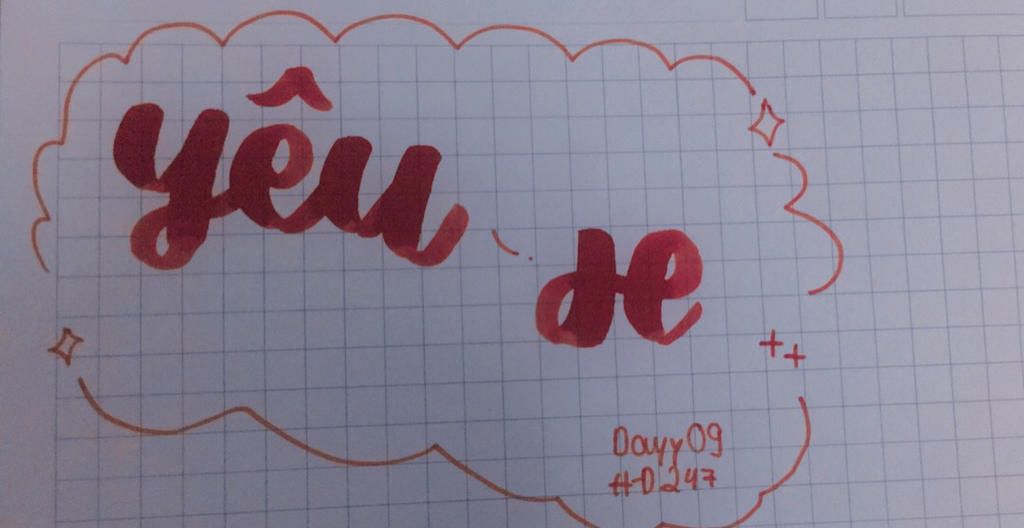 yêu
de
Dayy 09
#D247